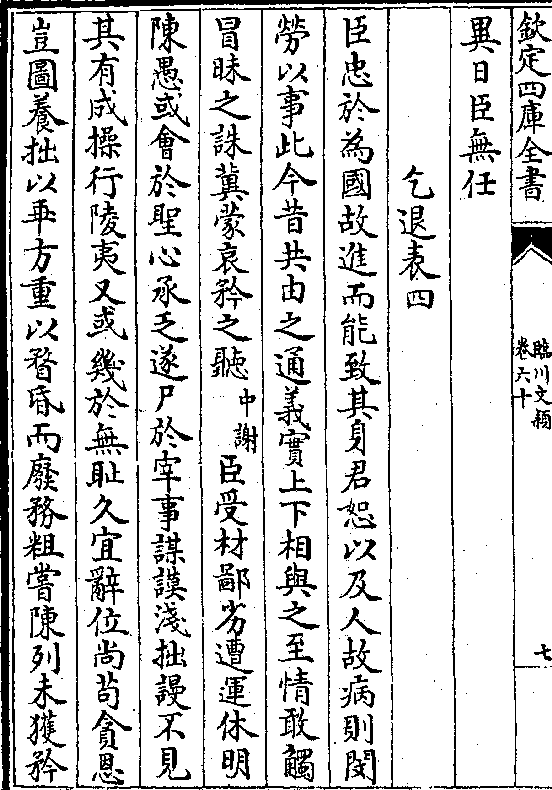 欽定四庫全書
臨川文類
卷六十
七
異日臣無任
乞退表四
臣忠於為國故進而能致其身君恕以及人故病則閔
勞以事此今昔共由之通義實上下相與之至情敢觸
冒昧之誅冀蒙哀矜之聽中謝臣受材鄙劣遭運休明
陳愚或會於聖心承乏遂尸於宰事謀謨淺拙謾不見
其有成操行陵夷又或幾於無耻久宜辭位尚苟貪恩
豈圖養拙以乖方重以瞀昏而廢務粗嘗陳列未獲矜